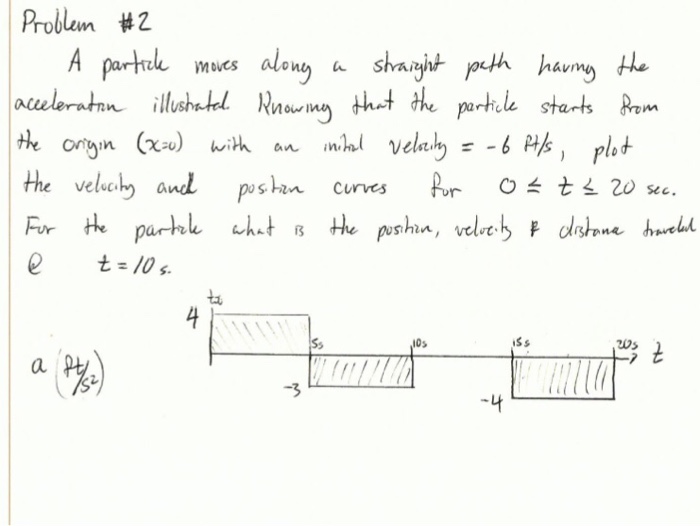 Problem #2
A particle moves along a straight path having the
acceleration illustrated. Knowing that the particle starts from
the origin (x=0) with an initial velocity = -6 ft/s, plot
the velocity and position curves for 0 ≤ t ≤ 20 sec.
For the particle what is the position, velocity & distance traveled
@ t = 10 s.
4
5s 10s 15s 20s t
a (ft/s²)
-3
-4